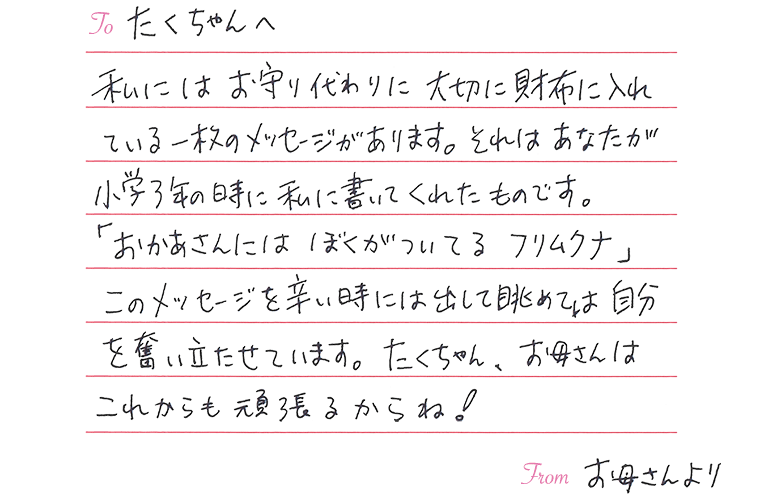 To たくちゃんへ
私には お守り代わりに 大切に財布に入れ
ている一枚のメッセージがあります。それは あなたが
小学3年の時に 私に書いてくれたものです。
「おかあさんには ぼくがついてる フリムクナ」
このメッセージを辛い時には出して眺めては 自分
を奮い立たせています。たくちゃん、お母さんは
これからも頑張るからね!
From お母さんより